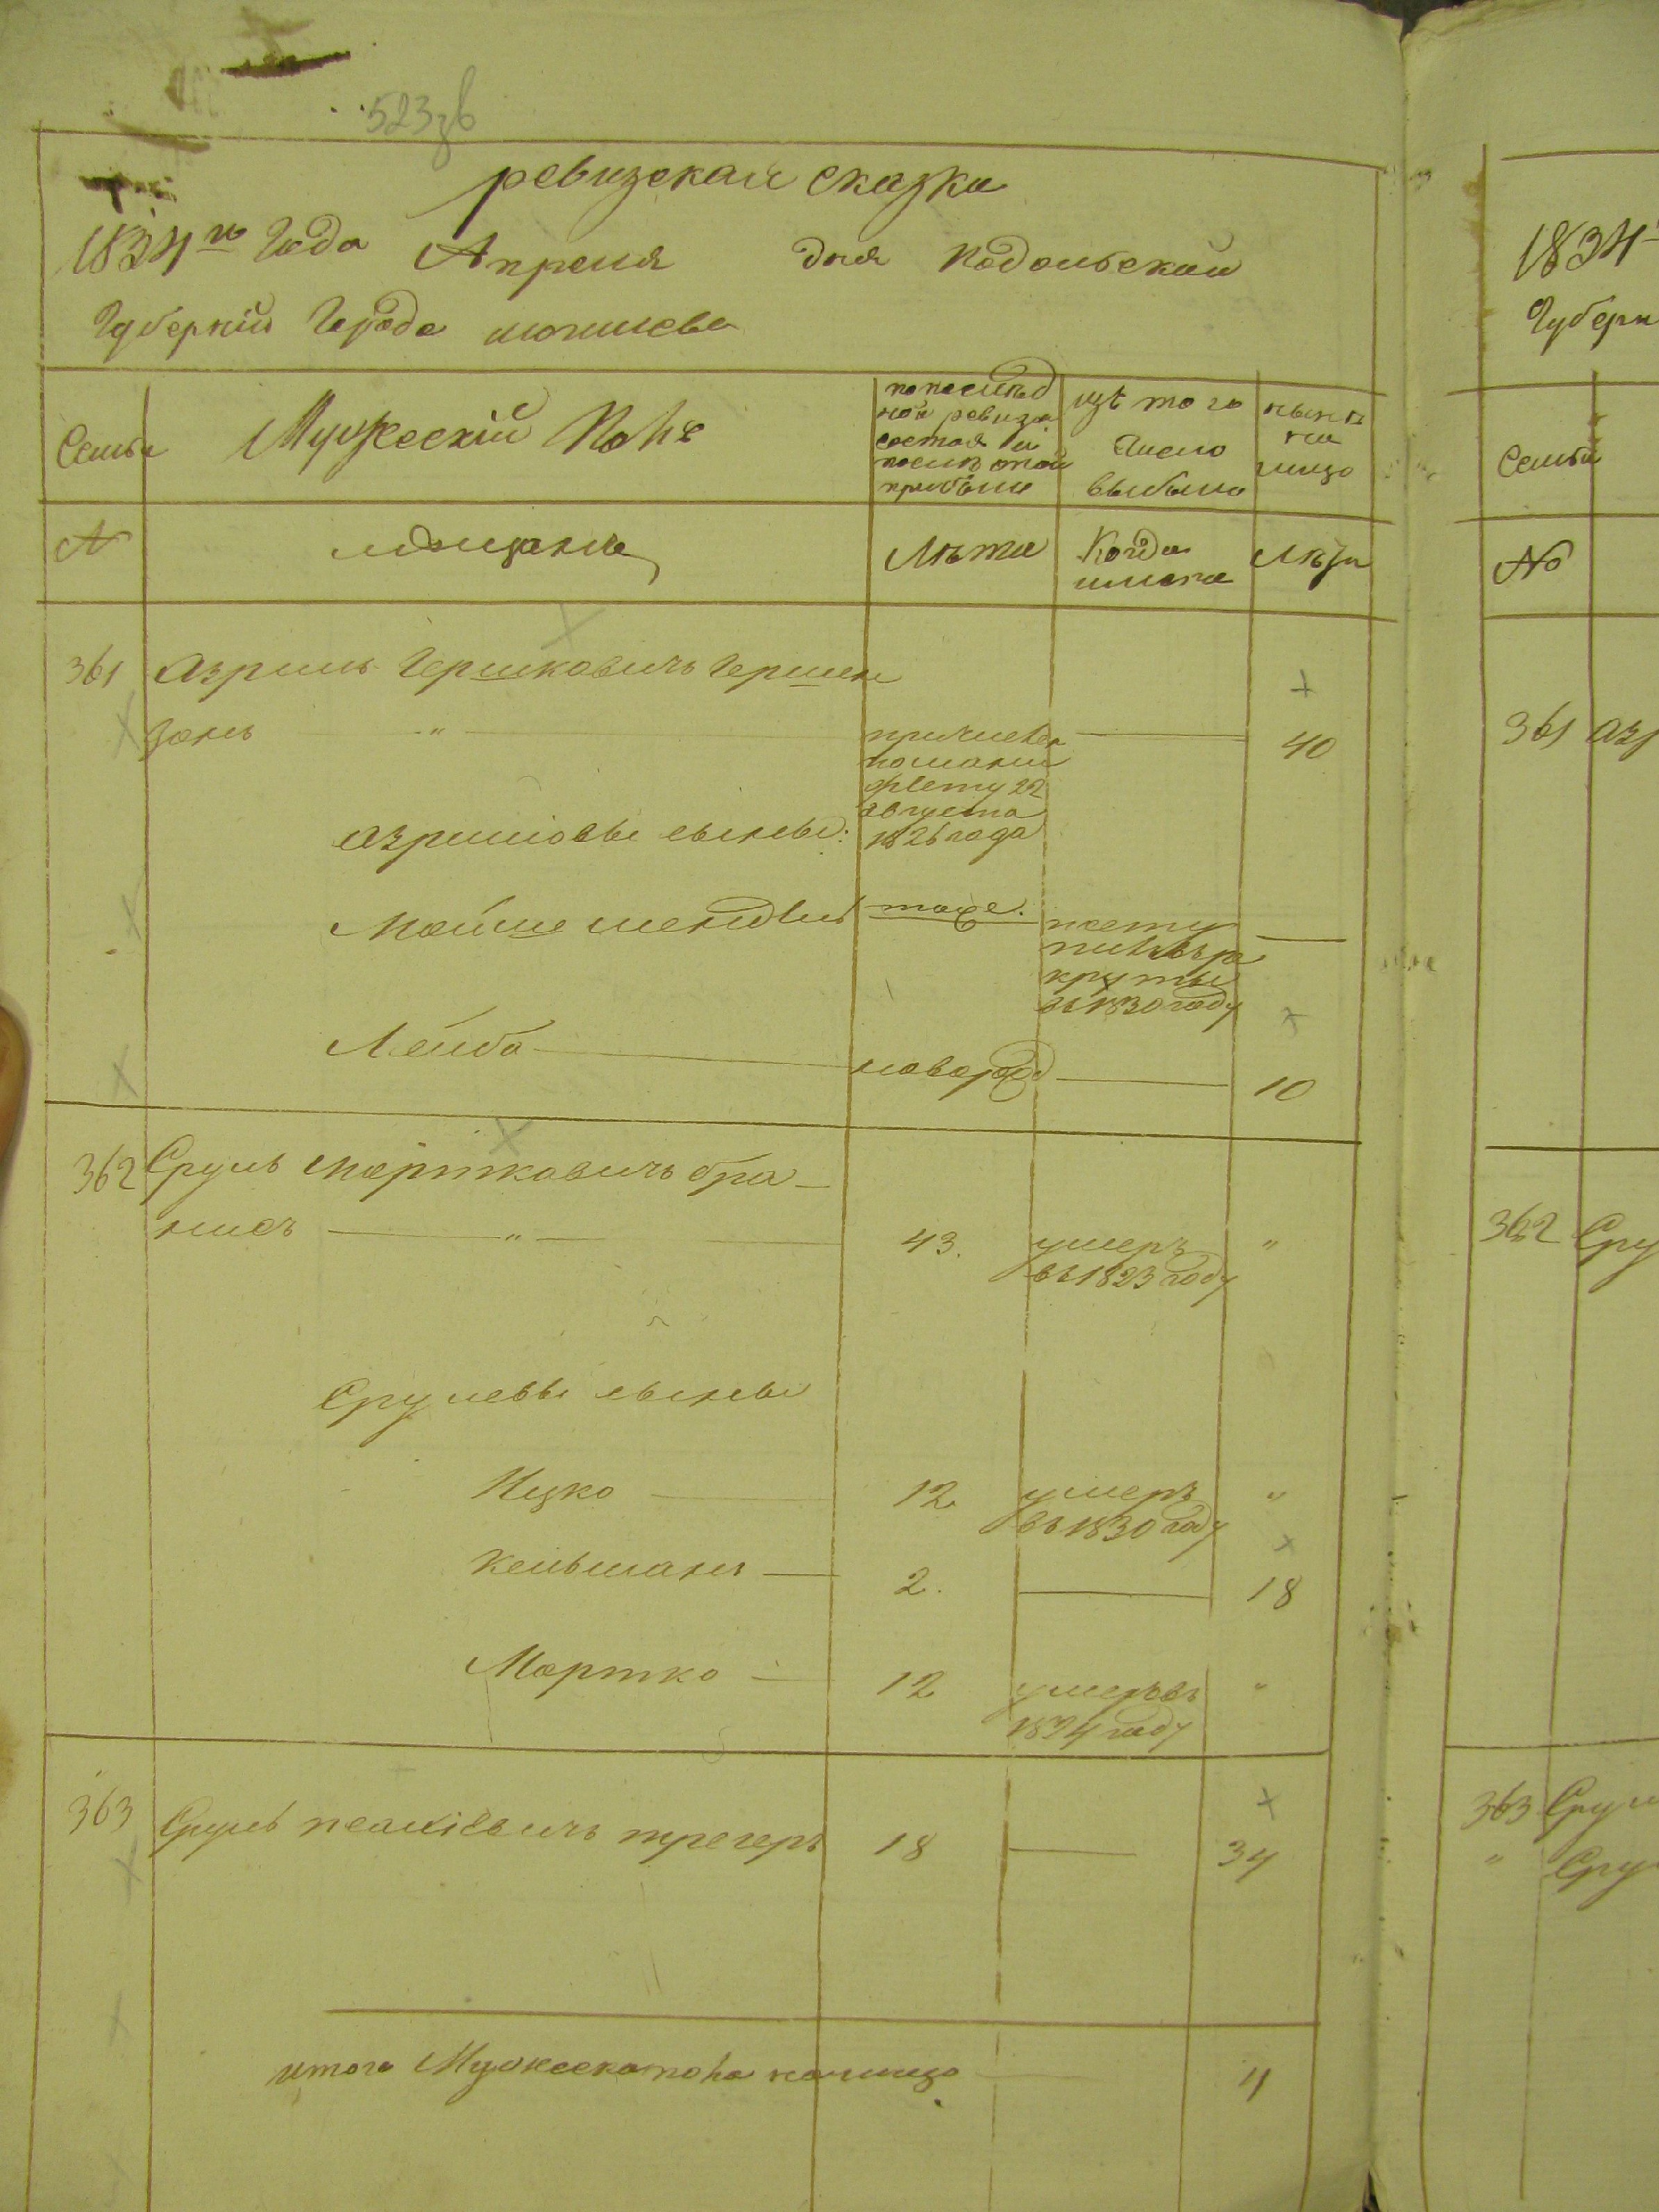 523зв
ревизская сказка
1834го Года Апреля дня Подольской
Губернии Города могилева
Семьи
Мужескій Полъ
по послѣд
ной ревизи
состоя и
послѣ оной
прибыли
изъ того
Число
выбыло
нынѣ
на
лицо
№
мещане
Лѣта
Когда
имено
Лѣта
361 Азриль Гершковичъ Гершен
зонъ " причислен 40
по мани
фесту 22
августа
1826 года
Азриловы сыновья:
Мошко Мендель тоже. посту
пилъ въ ре
круты
въ 1830 году
Лейба новорож 10
362 Сруль Мортковичъ бра-
нисъ " 43. умеръ "
въ 1823 году
Срулевы сыновья
Ицко 12 умеръ "
въ 1830 году
Кельманъ 2. 18
Мортко 12 умеръ въ "
1834 году
363 Сруль трегеръ 18 34
итого Мужеска пола на лицо 4
1834
Губерн
Семьи
№
361 Азр
362 Сру
363 Срул
" Сру